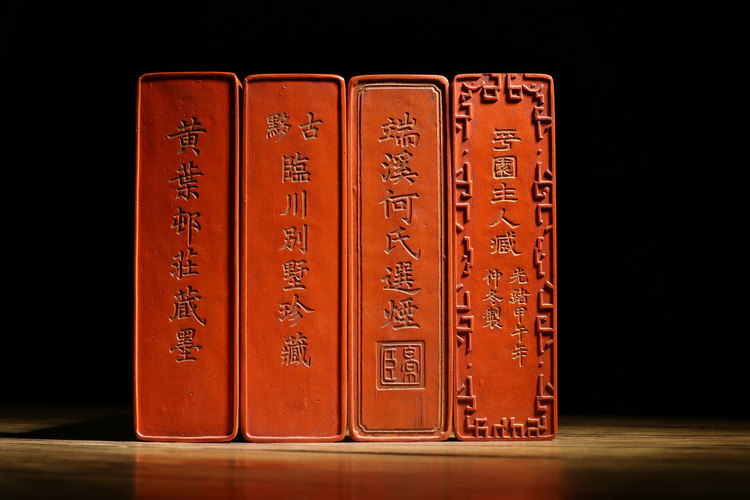 黄葉邨莊藏墨
古黟
臨川別墅珍藏
端溪何氏選煙
園主人藏
光緒甲午年
仲冬製